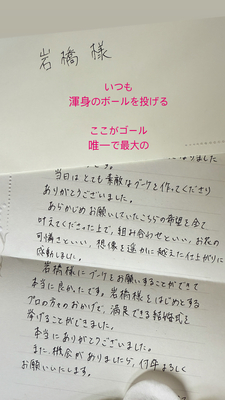 岩橋様
いつも
渾身のボールを投げる
ここがゴール
唯一で最大の
なりました
当日はとても素敵なブーケを作ってくださり
ありがとうございました。
あらかじめお願いしていたこちらの希望を全て
叶えてくださった上で、組み合わせといい、お花の
可憐さといい、想像を遥かに越えた仕上がりに
感動しました。
岩橋様にブーケをお願いすることができて
本当に良かったです。岩橋様をはじめとする
プロの方々のおかげで、満足できる結婚式を
挙げることができました。
本当にありがとうございました。
また機会がありましたら、何卒よろしく
お願いいたします。